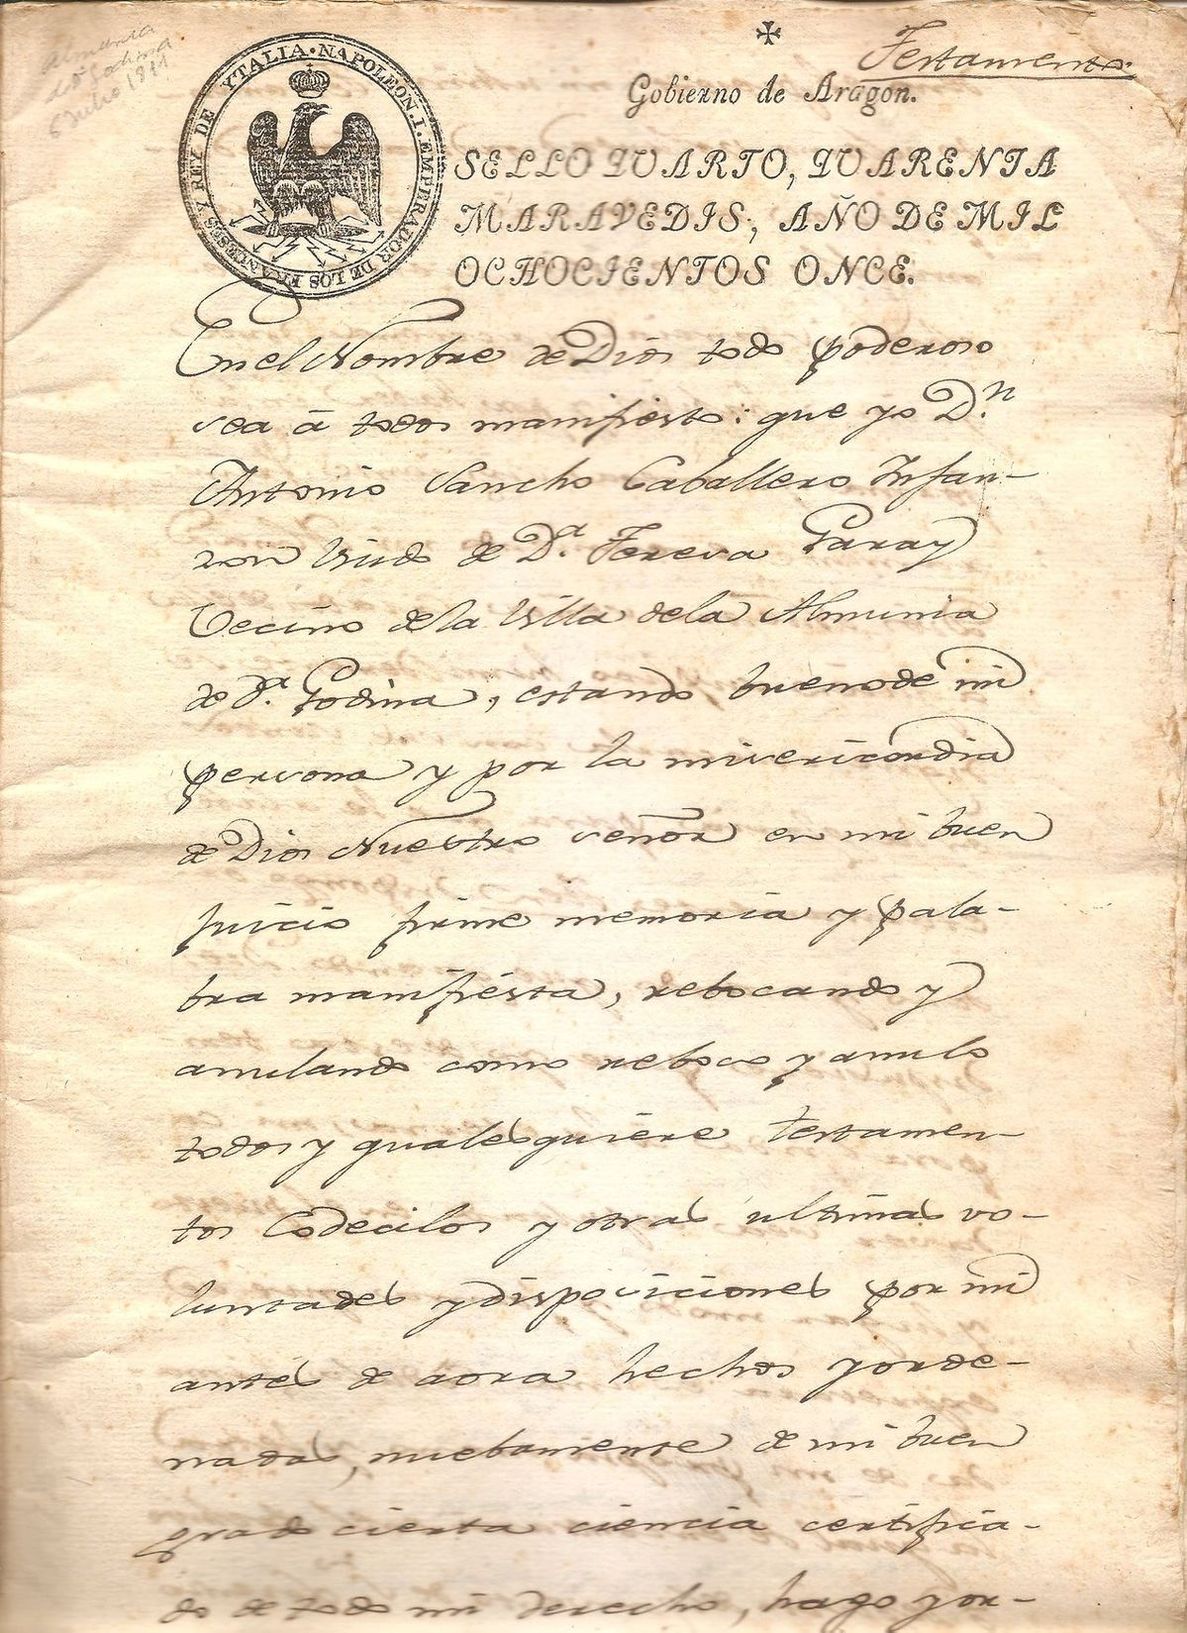 Almunia
de Dª Godina
6 Julio 1811
Testamento.
Gobierno de Aragon.
NAPOLEON.I.EMPERADOR DE LOS FRANCESES Y REY DE YTALIA
SELLO QUARTO, QUARENTA
MARAVEDIS, AÑO DE MIL
OCHOCIENTOS ONCE.
En el Nombre de Dios todo poderoso
sea á todos manifiesto: que yo D.n
Antonio Sancho Caballero Infan-
zon Viudo de D.a Teresa Garay
Vecino de la Villa de la Almunia
de d.a Godina, estando bueno de mi
persona y por la misericordia
de Dios Nuestro señor en mi buen
juicio firme memoria y pala-
bra manifiesta, rebocando y
anulando como reboco y anulo
todos y qualesquiere testamen-
tos Codecilos y otras ultimas vo-
luntades y disposiciones por mi
antes de aora hechos y orde-
nadas, nuebamente de mi buen
grado cierta ciencia certifica-
do de todo mi derecho, hago y or-